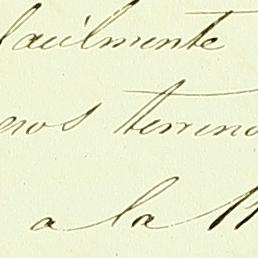 facilmente
eros terreno
a la